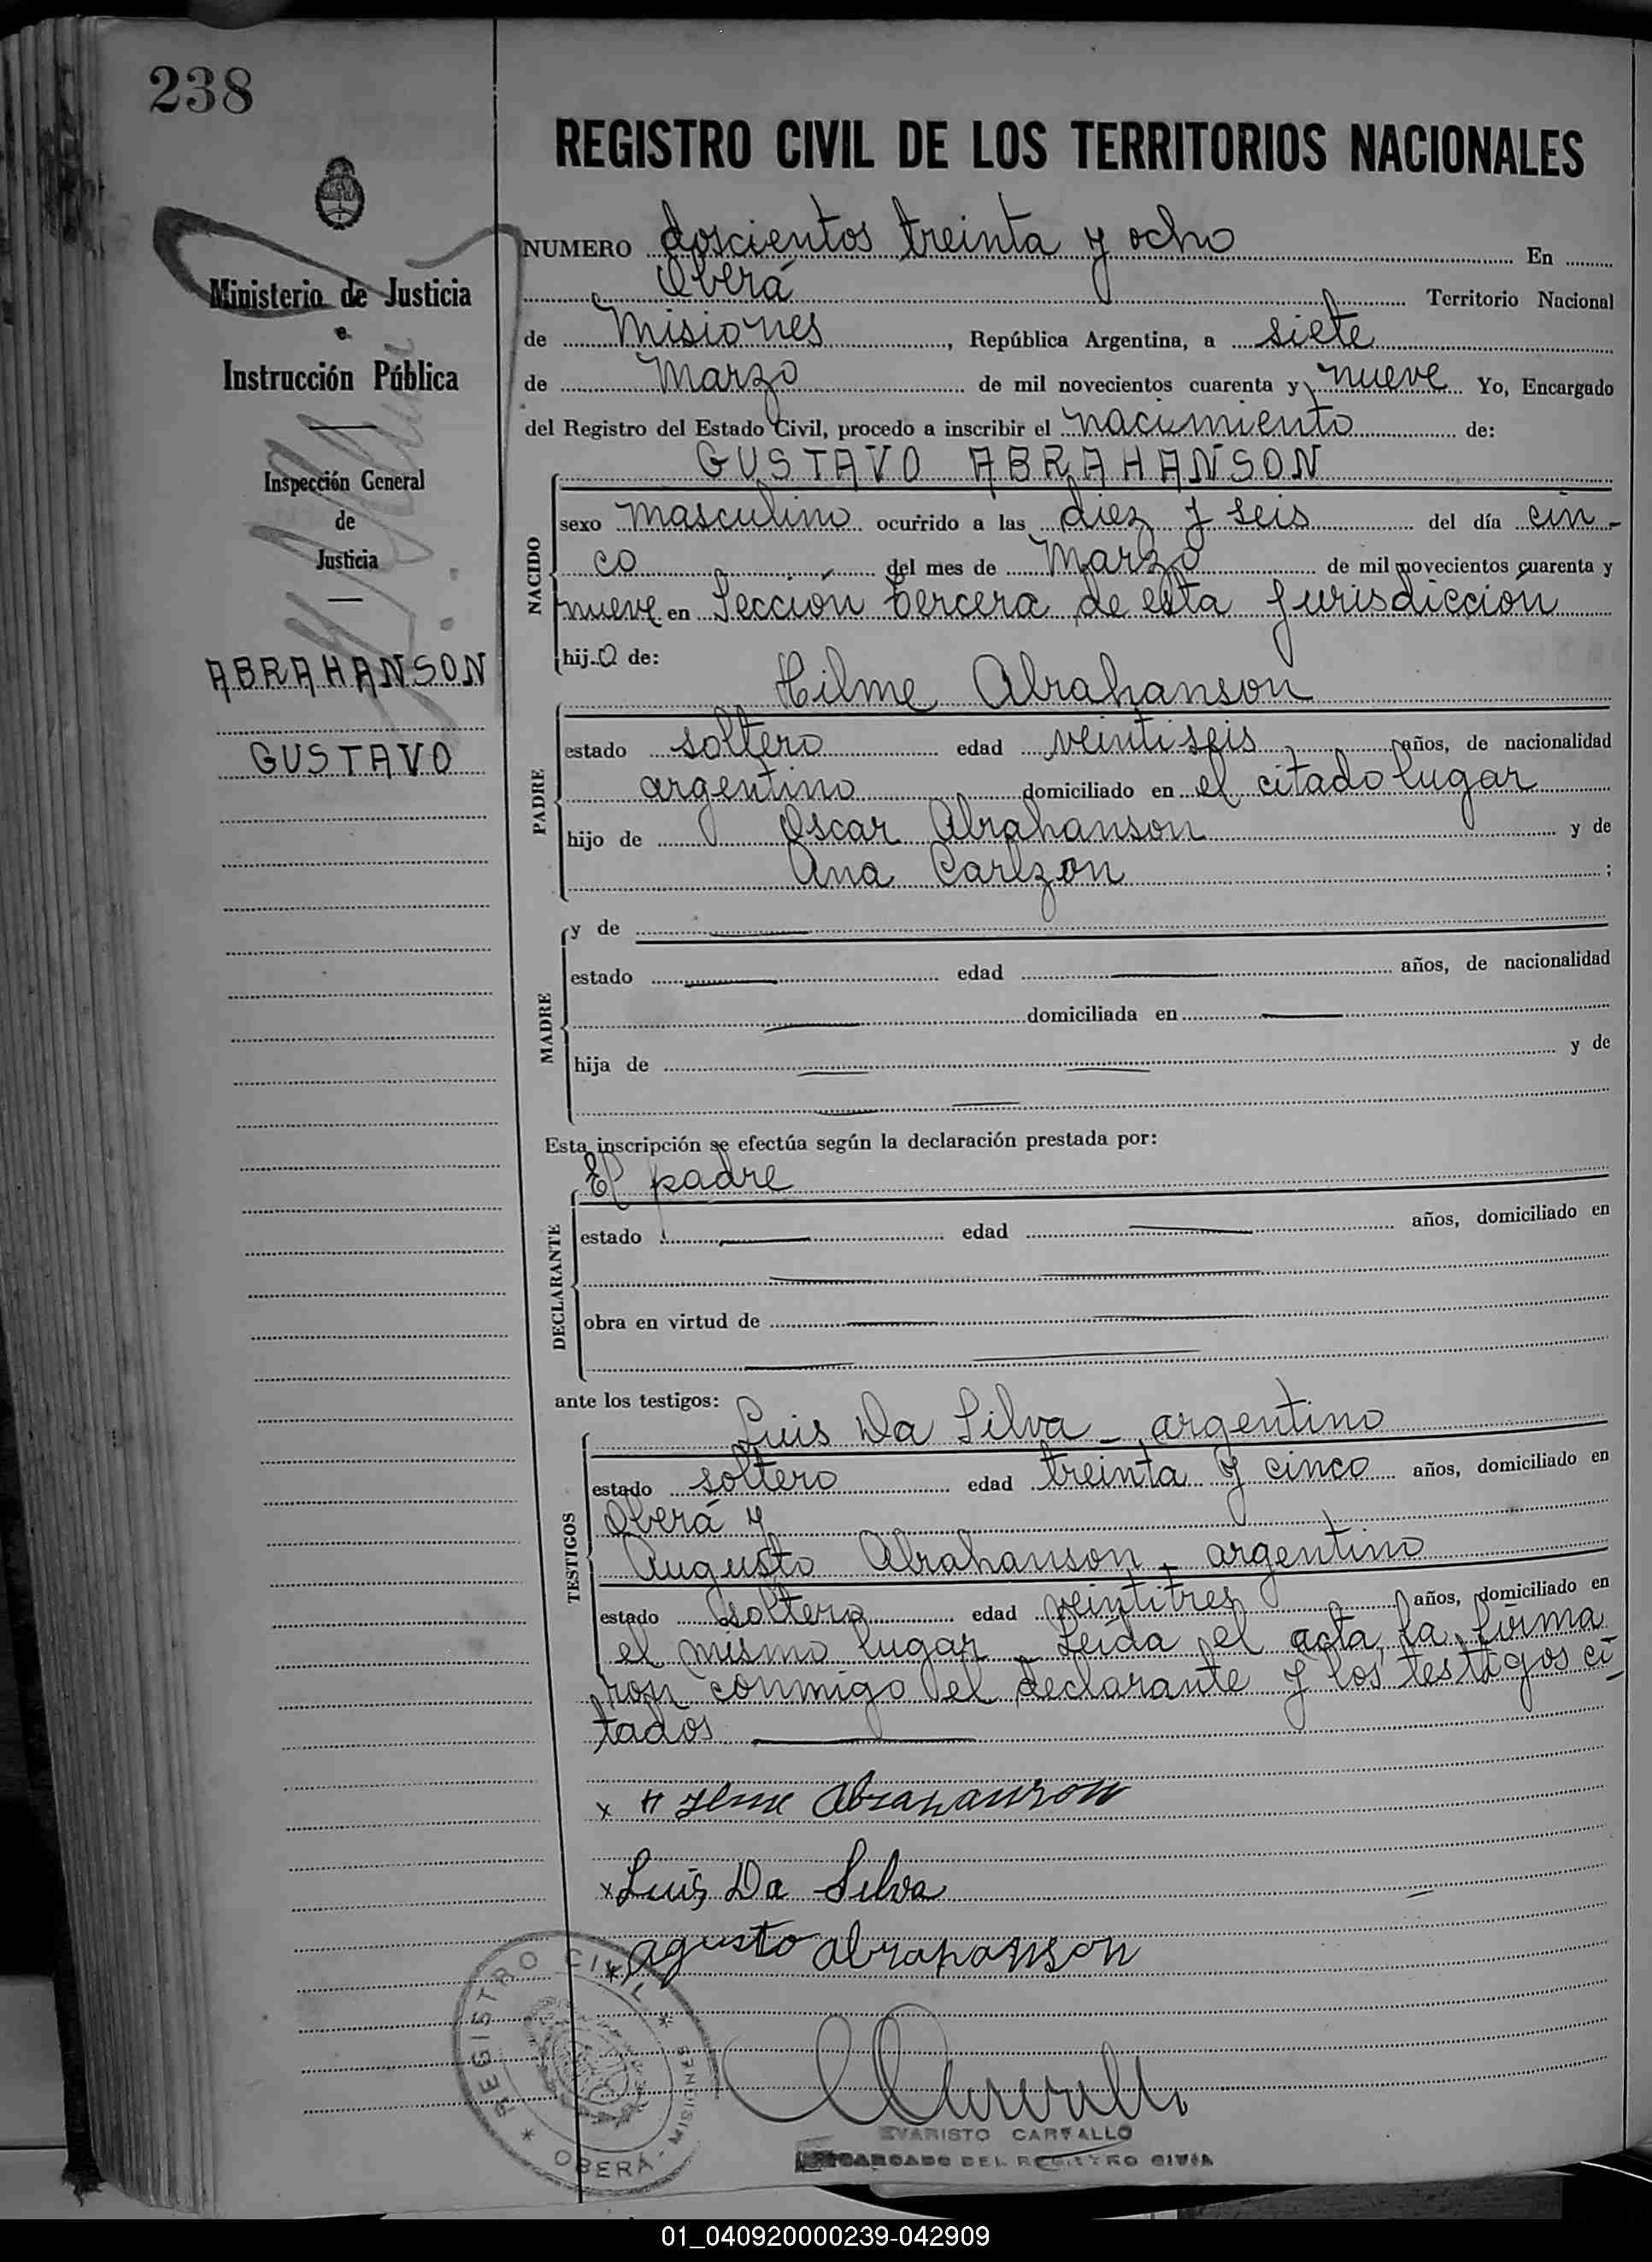 238
REGISTRO CIVIL DE LOS TERRITORIOS NACIONALES
NUMERO doscientos treinta y ocho En
Oberá Territorio Nacional
de Misiones, República Argentina, a siete
de Marzo de mil novecientos cuarenta y nueve Yo, Encargado
del Registro del Estado Civil, procedo a inscribir el nacimiento de:
GUSTAVO ABRAHANSON
NACIDO
sexo masculino ocurrido a las diez y seis del día cin-
co del mes de Marzo de mil novecientos cuarenta y
nueve en Sección tercera de esta jurisdicción
hijo de:
Hilme Abrahanson
PADRE
estado soltero edad veintiseis años, de nacionalidad
argentino domiciliado en el citado lugar
hijo de Oscar Abrahanson y de
Ana Carlzon ;
MADRE
y de
estado edad años, de nacionalidad
domiciliada en
hija de y de
Esta inscripción se efectúa según la declaración prestada por:
El padre
DECLARANTE
estado edad años, domiciliado en
obra en virtud de
ante los testigos:
Luis Da Silva - argentino
TESTIGOS
estado soltero edad treinta y cinco años, domiciliado en
Oberá y
Augusto Abrahanson - argentino
estado soltero edad veintitres años, domiciliado en
el mismo lugar - Leída el acta, la firma
ron conmigo el declarante y los testigos ci-
tados
x Hilme Abrahanson
x Luis Da Silva
x agusto abrahanson
EVARISTO CARVALLO
ENCARGADO DEL REGISTRO CIVIL
Ministerio de Justicia
e
Instrucción Pública
Inspección General
de
Justicia
ABRAHANSON
GUSTAVO
* REGISTRO CIVIL * OBERÁ - MISIONES
01_040920000239-042909